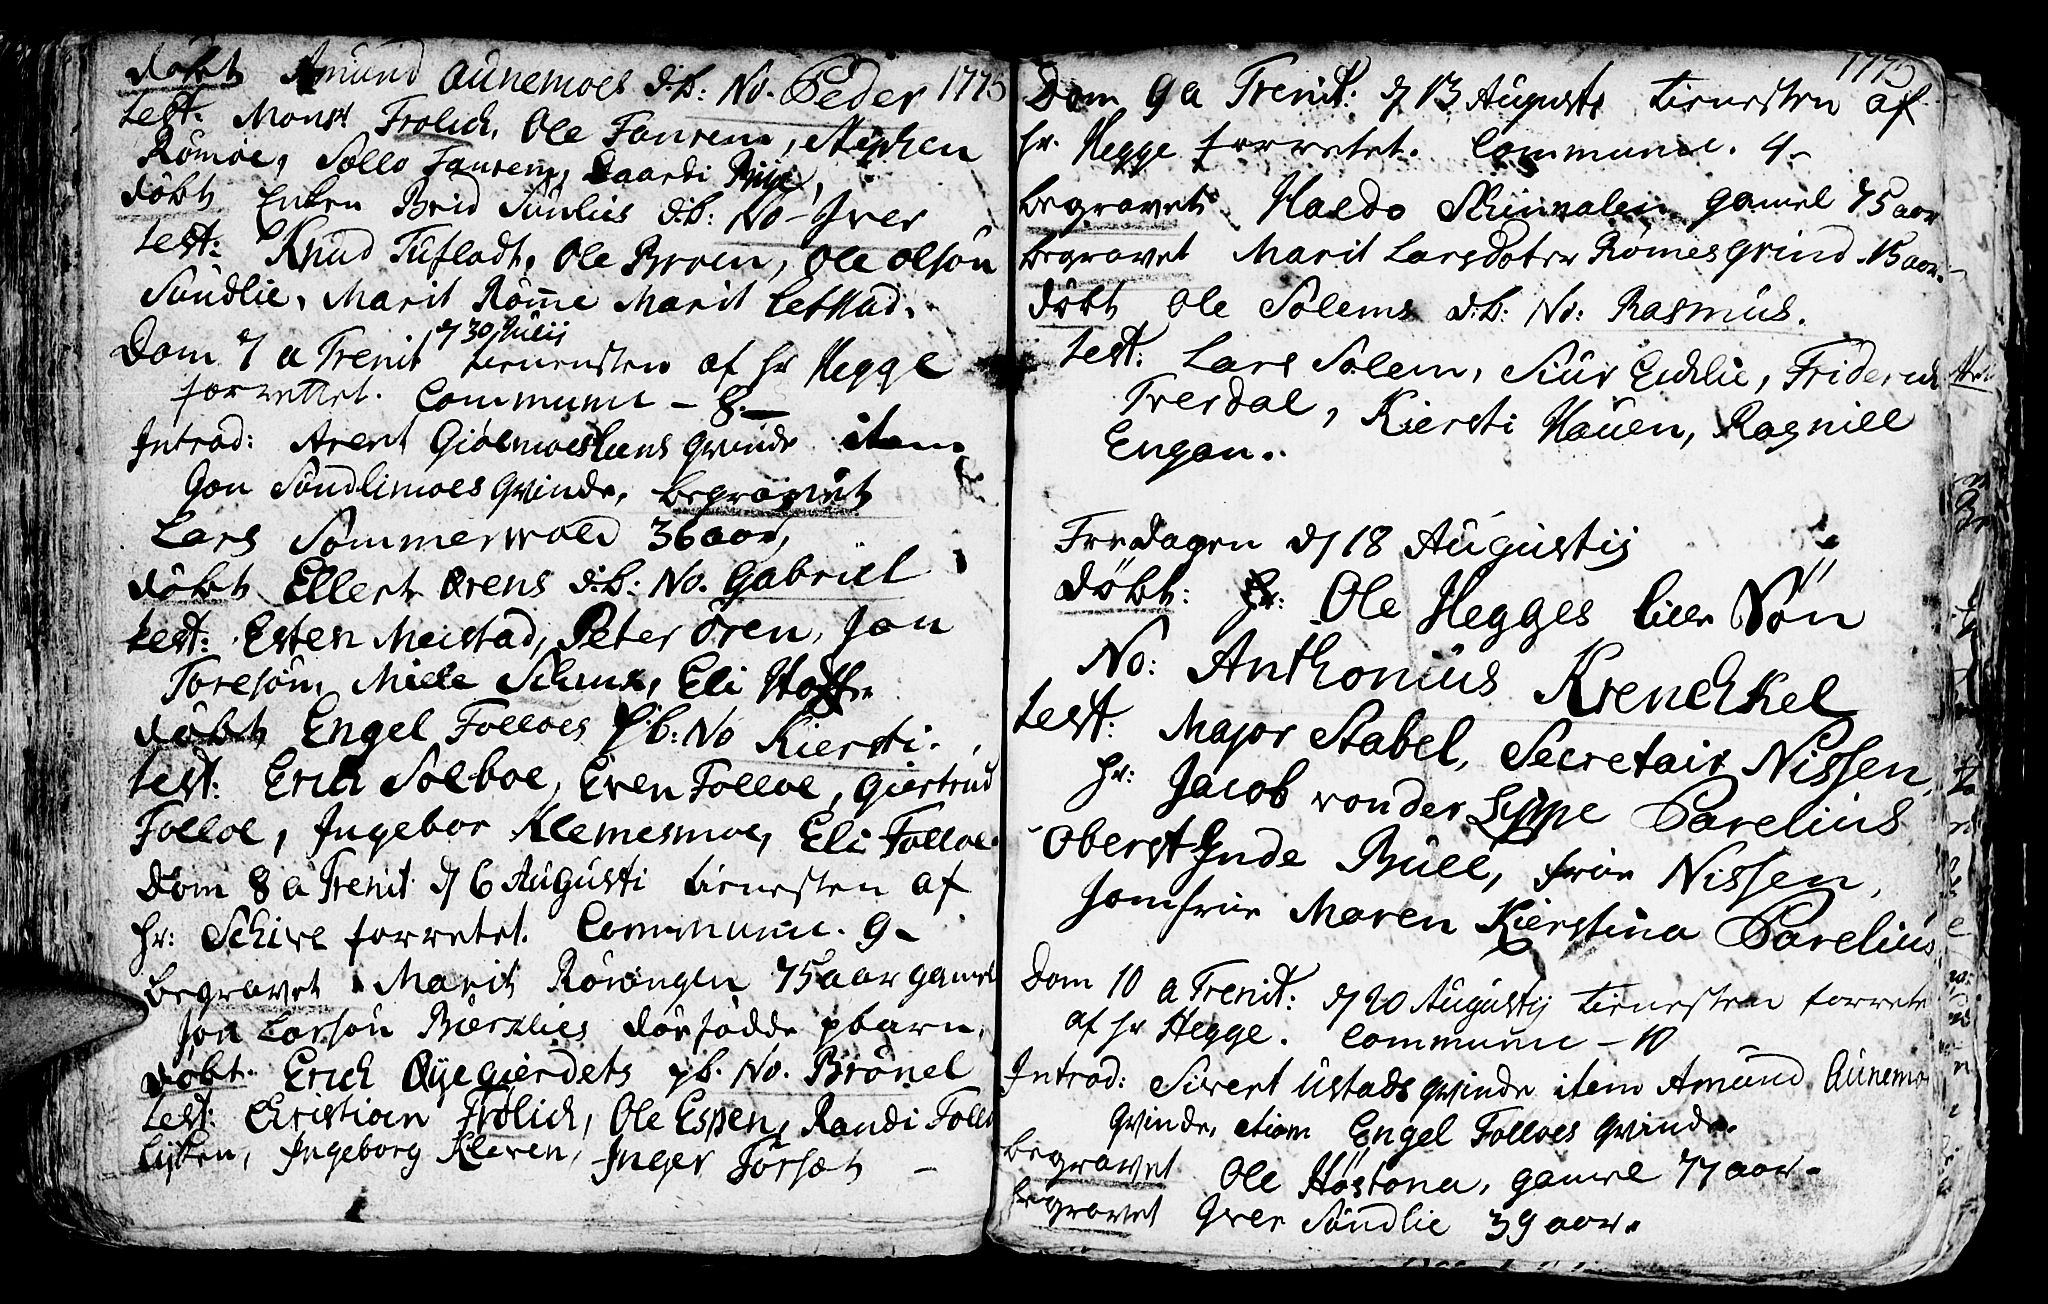 döbt Amund Aunemoes d:b: No. Peder 1775
test. Monsr Frolich, Ole Fanrem, Stephen
Römoe, Sollo Fanrem, Baardi Riise,
döbt Enken Brid Sündlies d:b: No – Iver
test: Knud Tüfladt, Ole Breen, Ole Olsön
Sündlie, Marit Röm̅e Marit Leffstad.
Dom 7 a Trenit d 30 Julij tienesten af hr Hegge
forrettet. Communi – 8. –
Introd: Arent Giölmoesliens qvinde item
Jon Sündlimoes qvinde, begravet
Lars Sommervold 36 aar,
döbt Ellert Örens d:b: No. Gabriel
test: Esten Meistad, Peter Ören, Jon
Toresön, Mille Schmz, Eli Hoff.
döbt Engel Folloes p:b: No Kiersti.
test: Erich Solboe, Even Folloe, Giertrud
Folloe, Ingebor Klemesmoe, Eli Folloe.
Dom 8 a Trenit d 6 Augusti tienesten af
hr: Schive forretet. Communi. 9 –
begravet Marit Röningen 75 aar gamel
Jon Larsön Bierklies dödfödde pbarn.
döbt. Erich Ryegierdets pb. No. Brönel
test: Christian Frölich, Ole Espen, Randi Follo
lykken, Ingeborg Kleven, Inger Forsæt –
1775
Dom 9 a Trenit: d 13 Augusti tienesten af
hr. Hegge forretet. Communi. 4 –
begravet Haldo Skinvalen gamel 75 aar
begravet Marit Larsdoter Römesgrind 15 aar. –
döbt Ole Solems d:b: No: Rasmus.
test: Lars Solem, Siur Echlie, Friderich
Trerdal, Kiersti Hauen, Ragnill
Engan.
Fredagen d 18 Augustij
döbt: Hr: Ole Hegges lille Sön
No: Anthonius Krenchel
test: Major Stabel, Secretair Nissen,
hr: Jacob von der Lippe Parelius
Oberst Inde Büll, frue Nissen,
Jomfrue Maren Kierstina Parelius.
Dom 10 a Trenit: d 20 Augustij tienesten forrete
af hr Hegge. Communi – 10
Introd: Sivert Ustads qvinde item Amund Aunemo
qvinde, etiam Engel Folloes qvinde.
begravet Ole Höstona, gamel 77 aar –
begravet Iver Sündlie 39 aar.